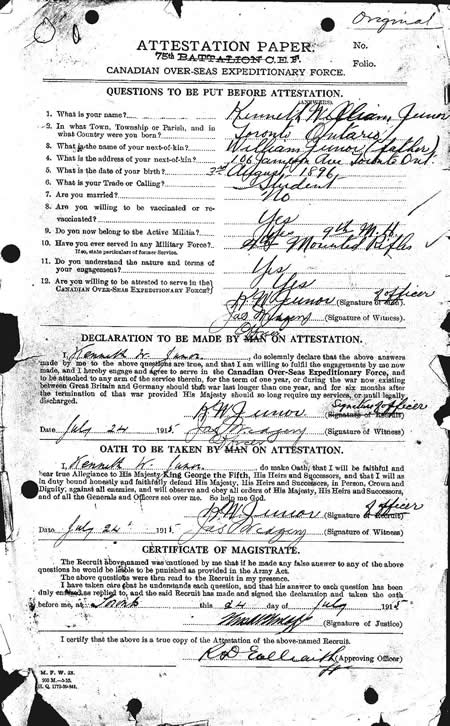 Original
ATTESTATION PAPER.
No.
75th BATTALION C.E.F.
Folio.
CANADIAN OVER-SEAS EXPEDITIONARY FORCE.
QUESTIONS TO BE PUT BEFORE ATTESTATION.
(ANSWERS)
1. What is your name? Kenneth William Junor
2. In what Town, Township or Parish, and in
what Country were you born? Toronto Ontario
3. What is the name of your next-of-kin? William Junor (father)
4. What is the address of your next-of-kin? 106 Jameson Ave Toronto Ont.
5. What is the date of your birth? 3rd August 1896
6. What is your Trade or Calling? Student
7. Are you married? No
8. Are you willing to be vaccinated or re-
vaccinated? Yes
9. Do you now belong to the Active Militia? Yes 9th M.H.
10. Have you ever served in any Military Force? Mounted Rifles
If so, state particulars of former Service.
11. Do you understand the nature and terms of
your engagement? Yes
12. Are you willing to be attested to serve in the
CANADIAN OVER-SEAS EXPEDITIONARY FORCE? Yes
K W Junor (Signature of Man). Officer
Jas (Signature of Witness).
Officer
DECLARATION TO BE MADE BY MAN ON ATTESTATION.
I, Kenneth W. Junor, do solemnly declare that the above answers
made by me to the above questions are true, and that I am willing to fulfil the engagements by me now
made, and I hereby engage and agree to serve in the Canadian Over-Seas Expeditionary Force, and
to be attached to any arm of the service therein, for the term of one year, or during the war now existing
between Great Britain and Germany should that war last longer than one year, and for six months after
the termination of that war provided His Majesty should so long require my services, or until legally
discharged.
K W Junor (Signature of Recruit) Signature of Officer
Date July 24 1915. Jas (Signature of Witness)
Officer
OATH TO BE TAKEN BY MAN ON ATTESTATION.
I, Kenneth W. Junor, do make Oath, that I will be faithful and
bear true Allegiance to His Majesty King George the Fifth, His Heirs and Successors, and that I will as
in duty bound honestly and faithfully defend His Majesty, His Heirs and Successors, in Person, Crown and
Dignity, against all enemies, and will observe and obey all orders of His Majesty, His Heirs and Successors,
and of all the Generals and Officers set over me. So help me God.
K W Junor (Signature of Recruit) Officer
Date July 24 1915. Jas (Signature of Witness)
CERTIFICATE OF MAGISTRATE.
The Recruit above-named was cautioned by me that if he made any false answer to any of the
above questions he would be liable to be punished as provided in the Army Act.
The above questions were then read to the Recruit in my presence.
I have taken care that he understands each question, and that his answer to each question has been
duly entered as replied to, and the said Recruit has made and signed the declaration and taken the oath
before me, at Toronto this 24 day of July 1915
(Signature of Justice)
I certify that the above is a true copy of the Attestation of the above-named Recruit.
(Approving Officer)
M. F. W. 23.